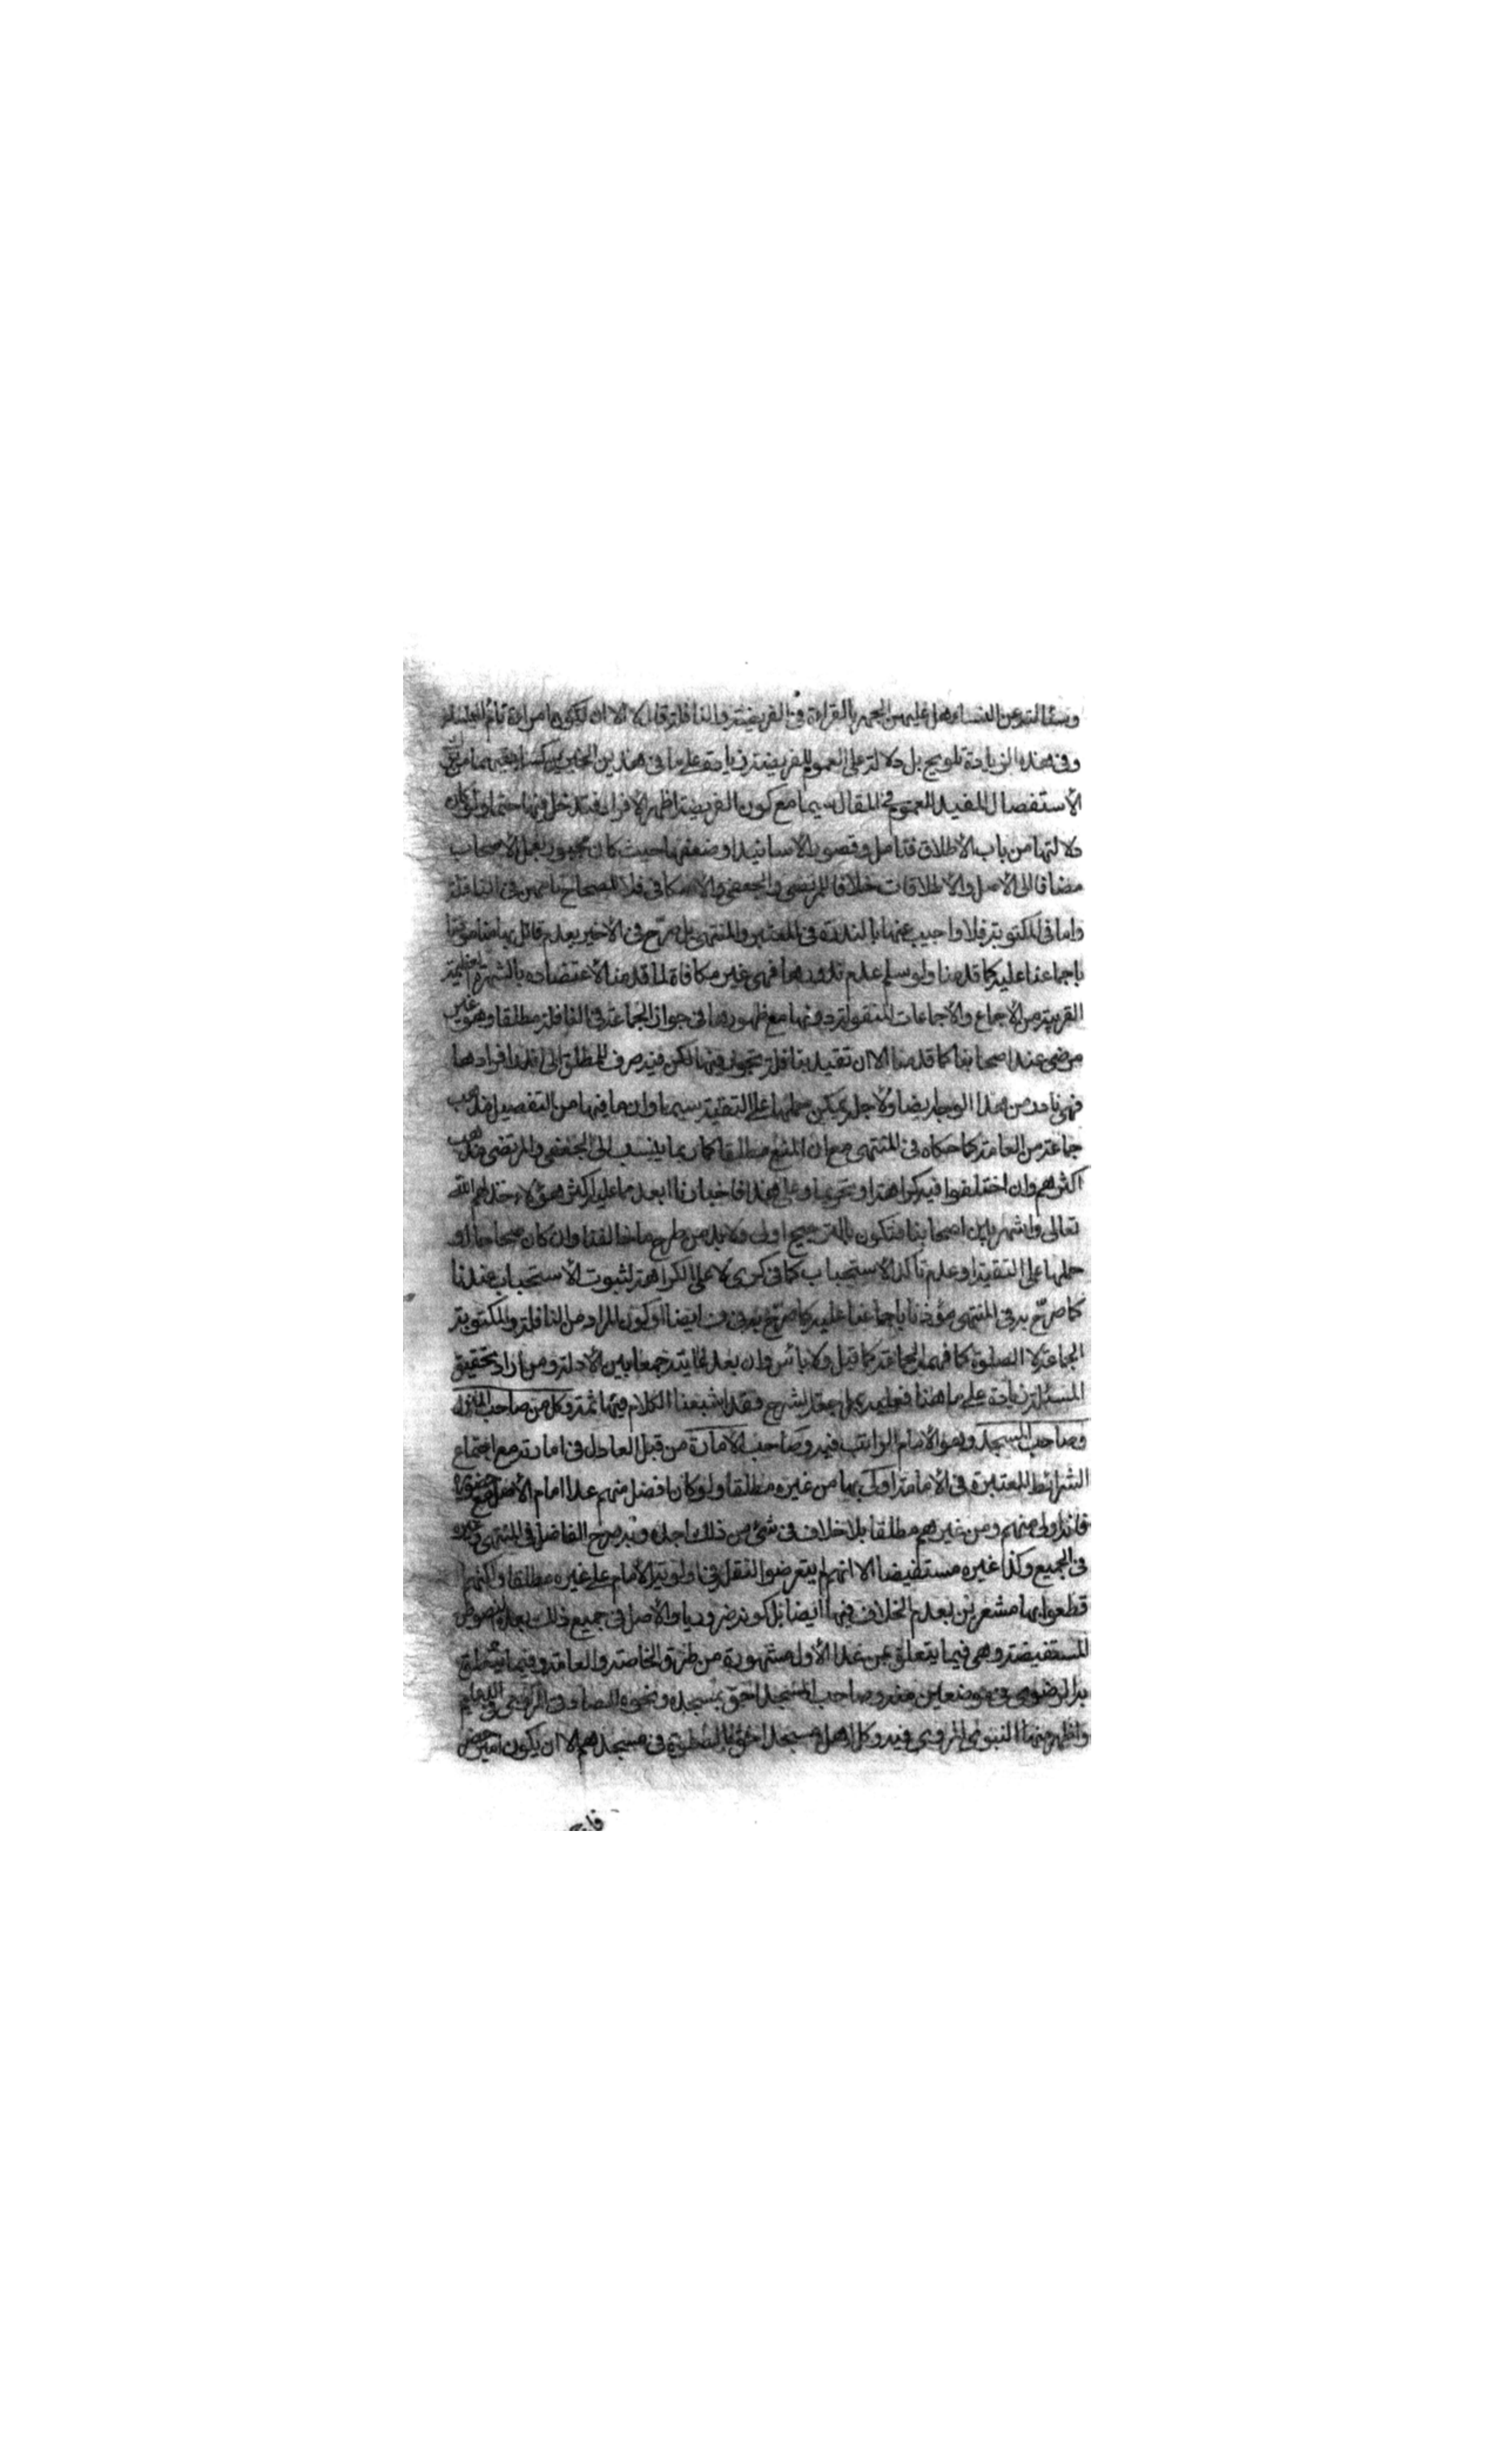 وسئالته عن النساء هل عليهن الجهر بالقراءة في الفريضة والنافلة قال لا الا ان تكون امراة تام النساء
وفي هذه الزيادة تلويح بل دلالة على العموم للفريضة زيادة على ما في هذين الخبرين كسابقيهما من ترك
الاستفصال المفيد للعموم في المقال سيما مع كون الفريضة اظهر الافراد فتدخل فيها حتما ولو كان
دلالتها من باب الاطلاق فتامل وقصور الاسانيد او ضعفها حيث كان مجبور بعمل الاصحاب
مضافا الى الاصل والاطلاقات خلافا للمرتضى والجعفي والاسكافي فلا للصحاح ناصهن في النافلة
واما في المكتوبة فلا واجيب عنها بالندرة في المعتبر والمنتهى بل صرح في الاخير بعدم قائل بها منا مؤذنا
باجماعنا عليه كما قدمنا ولو سلم عدم ندورها فهي غير مكافاة لما قدمنا لاعتضاده بالشهرة العظيمة
القريبة من الاجماع والاجماعات المنقولة دونها مع ظهورها في جواز الجماعة في النافلة مطلقا وهو غير
مرضي عند اصحابنا كما قدمنا الا ان تقيد بنافلة تجوز فيها لكن فيه صرف للمطلق الى اندر افرادها
فهي نادر من هذا الوجه ايضا ولاجله يمكن حملها على التقية سيما وان ما فيها من التفصيل مذهب
جماعة من العامة كما حكاه في المنتهى مع ان المنع مطلقا كما ربما ينسب الى الجعفي والمرتضى مذهب
اكثرهم وان اختلفوا فيه كراهة او تحريما وعلى هذا فاخبارنا ابعد مما عليه اكثر هؤلاء خذلهم الله
تعالى واشهر بين اصحابنا فتكون بالترجيح اولى ولا بد من طرح ما خالفنا وان كان صحاحا او
حملها على التقية او عدم تاكد الاستحباب كما في كرى لا على الكراهة لثبوت الاستحباب عندنا
كما صرح به في المنتهى مؤذنا باجماعنا عليه كما صرح به في ف ايضا او كون المراد من النافلة والمكتوبة
الجماعة لا الصلوة كما فهمه الجماعة كما قيل ولا باس وان بعد غايته جمعا بين الادلة ومن اراد تحقيق
المسئلة زيادة على ما هنا فعليه بمراجعة الشرح فقد اشبعنا الكلام فيها ثمة وكل من صاحب المنزل
وصاحب المسجد وهو الامام الراتب فيه وصاحب الامارة من قبل العادل في امارته مع اجتماع
الشرائط المعتبرة في الامامة اولى بها من غيره مطلقا ولو كان افضل منهم عدا امام الاصل مع حضوره
فانه اولى منهم ومن غيرهم مطلقا بلا خلاف في شئ من ذلك اجده وبه صرح الفاضل في المنتهى وغيره
في الجميع وكذا غيره مستفيضا الا انهم لم يتعرضوا لنقل في اولوية الامام على غيره مطلقا ولكنهم
قطعوا بها مشعرين بعدم الخلاف فيها ايضا بل كونه ضروريا والاصل في جميع ذلك بعده النصوص
المستفيضة وهي فيما يتعلق بمن عدا الاول مشهورة من طرق الخاصة والعامة وفيما يتعلق
به الرضوي في موضعين منه وصاحب المسجد احق بمسجده ونحوه الصادق المروي في الدعايم
واظهر منها النبوي المروي فيه وكل اهل مسجد احق بالصلوة في مسجدهم الا ان يكون امير حضر